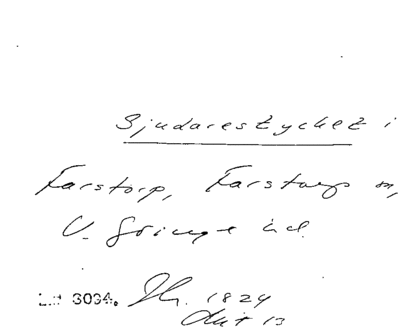 Sjudarestycket i
Farstorp, Farstorp sn,
V. Göinge hd.
LUF 3034. 1824